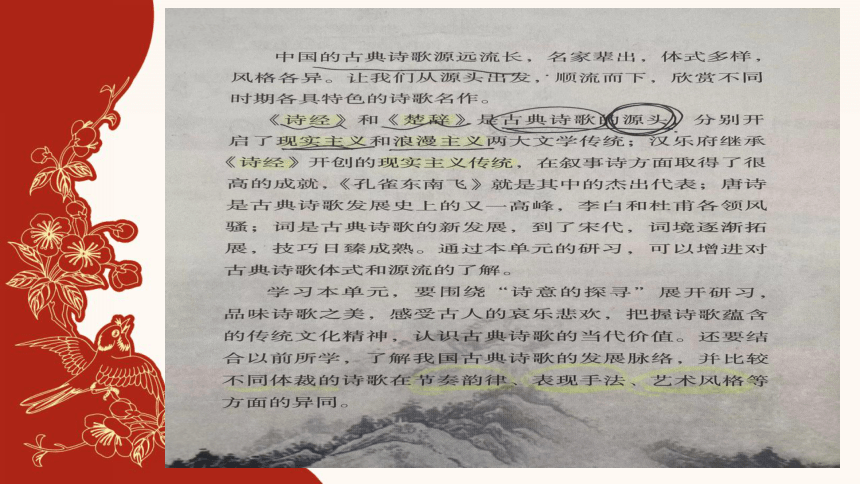 中国的古典诗歌源远流长，名家辈出，体式多样，
风格各异。让我们从源头出发，顺流而下，欣赏不同
时期各具特色的诗歌名作。
《诗经》和《楚辞》是古典诗歌的源头，分别开
启了现实主义和浪漫主义两大文学传统；汉乐府继承
《诗经》开创的现实主义传统，在叙事诗方面取得了很
高的成就，《孔雀东南飞》就是其中的杰出代表；唐诗
是古典诗歌发展史上的又一高峰，李白和杜甫各领风
骚；词是古典诗歌的新发展，到了宋代，词境逐渐拓
展，技巧日臻成熟。通过本单元的研习，可以增进对
古典诗歌体式和源流的了解。
学习本单元，要围绕“诗意的探寻”展开研习，
品味诗歌之美，感受古人的哀乐悲欢，把握诗歌蕴含
的传统文化精神，认识古典诗歌的当代价值。还要结
合以前所学，了解我国古典诗歌的发展脉络，并比较
不同体裁的诗歌在节奏韵律、表现手法、艺术风格等
方面的异同。